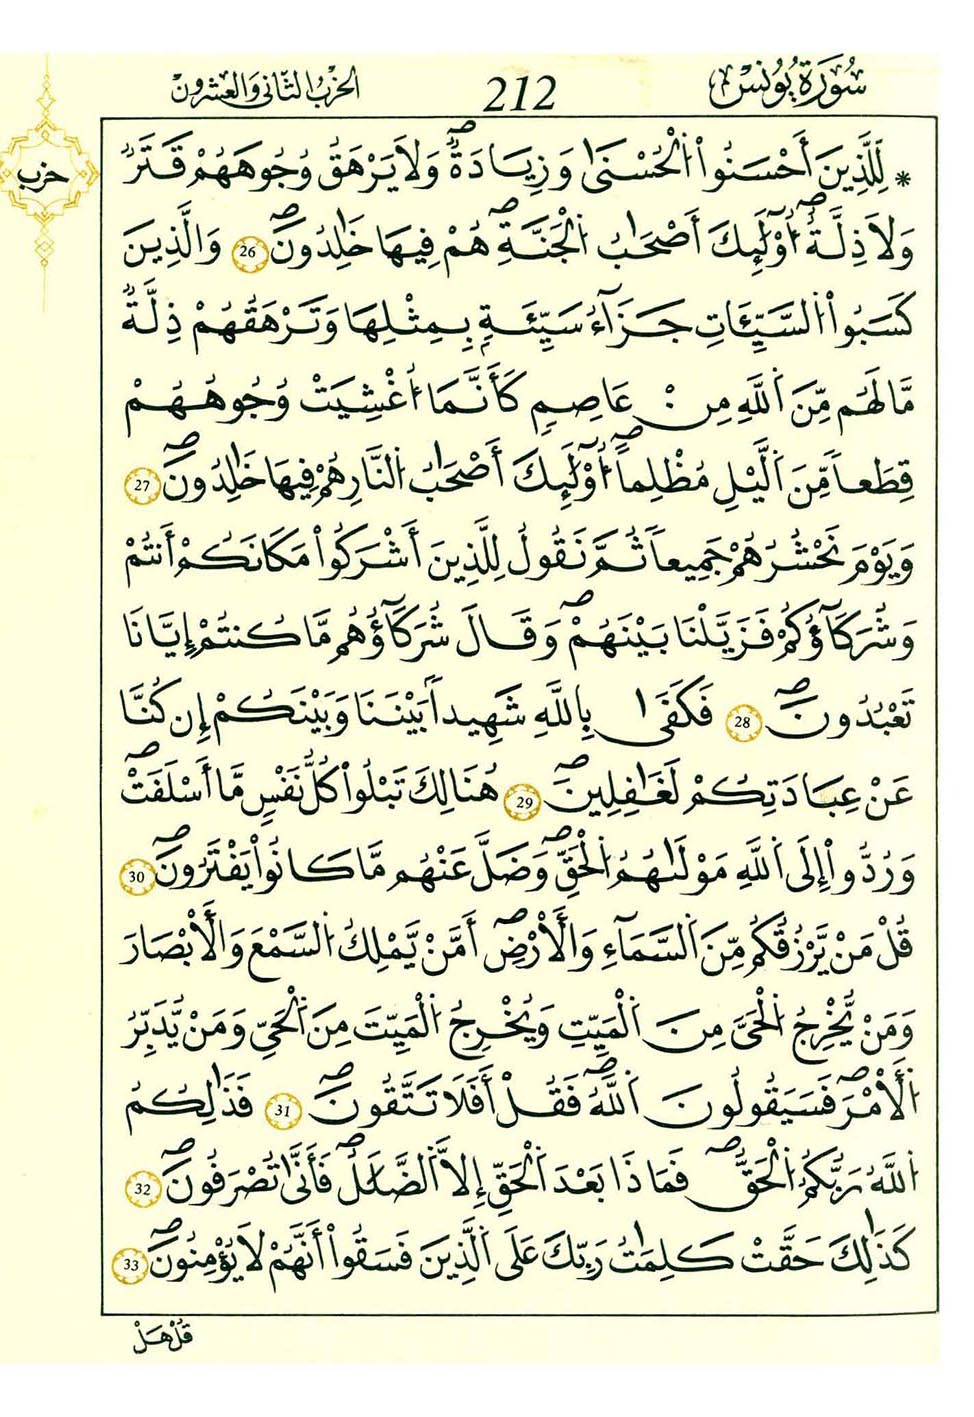 سُورَةُ يُونُسَ 212 الحزب الثاني والعشرون
حزب
* لِّلَّذِينَ أَحْسَنُواْ الْحُسْنَىٰ وَزِيَادَةٌ وَلَا يَرْهَقُ وُجُوهَهُمْ قَتَرٌ
وَلَا ذِلَّةٌ أُوْلَٰٓئِكَ أَصْحَٰبُ الْجَنَّةِ هُمْ فِيهَا خَٰلِدُونَ 26 وَالَّذِينَ
كَسَبُواْ السَّيِّـَٔاتِ جَزَآءُ سَيِّئَةٍ بِمِثْلِهَا وَتَرْهَقُهُمْ ذِلَّةٌ
مَّا لَهُم مِّنَ اللَّهِ مِنْ عَاصِمٍ كَأَنَّمَا أُغْشِيَتْ وُجُوهُهُمْ
قِطَعاً مِّنَ الَّيْلِ مُظْلِماً أُوْلَٰٓئِكَ أَصْحَٰبُ النَّارِ هُمْ فِيهَا خَٰلِدُونَ 27
وَيَوْمَ نَحْشُرُهُمْ جَمِيعاً ثُمَّ نَقُولُ لِلَّذِينَ أَشْرَكُواْ مَكَانَكُمْ أَنتُمْ
وَشُرَكَآؤُكُمْ فَزَيَّلْنَا بَيْنَهُمْ وَقَالَ شُرَكَآؤُهُم مَّا كُنتُمْ إِيَّانَا
تَعْبُدُونَ 28 فَكَفَىٰ بِاللَّهِ شَهِيداً بَيْنَنَا وَبَيْنَكُمْ إِن كُنَّا
عَنْ عِبَادَتِكُمْ لَغَٰفِلِينَ 29 هُنَالِكَ تَبْلُواْ كُلُّ نَفْسٍ مَّا أَسْلَفَتْ
وَرُدُّواْ إِلَى اللَّهِ مَوْلَىٰهُمُ الْحَقِّ وَضَلَّ عَنْهُم مَّا كَانُواْ يَفْتَرُونَ 30
قُلْ مَنْ يَّرْزُقُكُم مِّنَ السَّمَآءِ وَالْأَرْضِ أَمَّنْ يَّمْلِكُ السَّمْعَ وَالْأَبْصَارَ
وَمَنْ يُّخْرِجُ الْحَيَّ مِنَ الْمَيِّتِ وَيُخْرِجُ الْمَيِّتَ مِنَ الْحَيِّ وَمَنْ يُّدَبِّرُ
الْأَمْرَ فَسَيَقُولُونَ اللَّهُ فَقُلْ أَفَلَا تَتَّقُونَ 31 فَذَٰلِكُمُ
اللَّهُ رَبُّكُمُ الْحَقُّ فَمَاذَا بَعْدَ الْحَقِّ إِلَّا الضَّلَٰلُ فَأَنَّىٰ تُصْرَفُونَ 32
كَذَٰلِكَ حَقَّتْ كَلِمَٰتُ رَبِّكَ عَلَى الَّذِينَ فَسَقُواْ أَنَّهُمْ لَا يُؤْمِنُونَ 33
قُلْ هَلْ